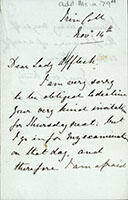 Add. Ms. a. 79
Trin. Coll.
Nov. 14th
Dear Lady Affleck
I am very sorry
to be obliged to decline
your very kind invitation
for Thursday next. But
I go in for my examination
on that day, and
therefore I am afraid